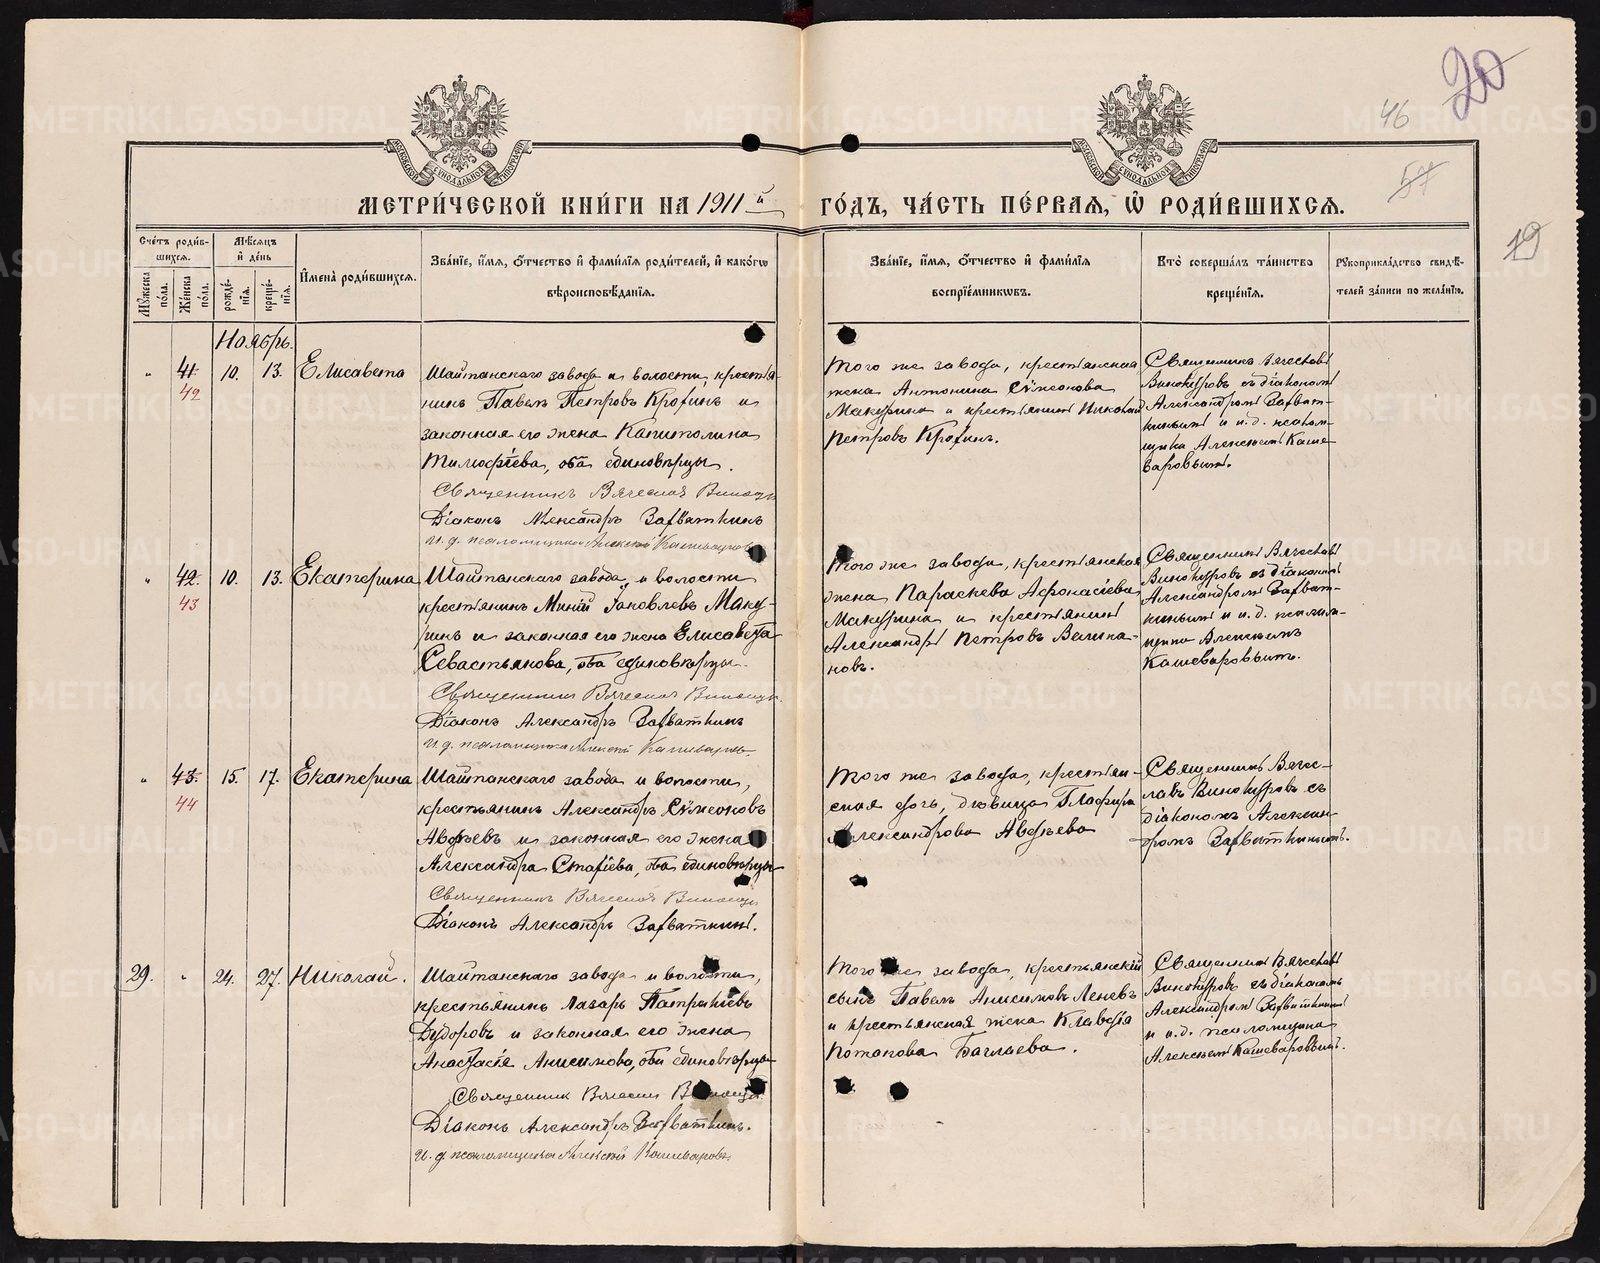 20
46
57
19
МЕТРИ́ЧЕСКОЙ КНИ́ГИ НА 1911й ГО́ДЪ, ЧА́СТЬ ПЕ́РВАЯ, Ѡ РОДИ́ВШИХСЯ.
Сче́тъ роди́в-
шихся.
Мꙋжеска по́ла.
Же́нска по́ла.
Мѣ́сяцъ
и де́нь
рожде́-
нїя.
креще́-
нїя.
Имена̀ роди́вшихся.
Зва́нїе, и́мя, о́тчество и фами́лїя роди́телей, и како́гѡ
вѣроисповѣ́данїя.
Зва́нїе, и́мя, о́тчество и фами́лїя
воспрїе́мниковъ.
Кто̀ соверша́лъ та́инство
креще́нїя.
Рꙋкоприкла́дство свидѣ́-
телей за́писи по жела́нїю.
Ноябрь.
" 41 10. 13. Елисавета
42
Шайтанскаго завода и волости, крестья-
нинъ Павелъ Петровъ Крохинъ и
законная его жена Капитолина
Тимоѳіева, оба единовѣрцы.
Священникъ Вячеслав
Діаконъ Александръ Захваткинъ
И. д. псаломщика Алексей Кашеваровъ
Того же завода, крестьянская
жена Антонина Сѵмеонова
Макурина и крестьянинъ Николай
Петровъ Крохинъ.
Священникъ Вячеславъ
Винокуровъ съ діакономъ
Александромъ Захват-
кинымъ и и. д. псалом-
щика Алексеемъ Каше-
варовымъ.
" 42. 10. 13. Екатерина
43
Шайтанскаго завода и волости
крестьянинъ Миній Іаковлевъ Маку-
ринъ и законная его жена Елисавета
Севастьянова, оба единовѣрцы.
Священникъ Вячеслав
Діаконъ Александръ Захваткинъ
И. д. псаломщика Алексей Кашеваровъ
Того же завода, крестьянская
жена Параскева Аѳонасіева
Макурина и крестьянинъ
Александръ Петровъ Велика-
новъ.
Священникъ Вячеславъ
Винокуровъ съ діакономъ
Александромъ Захват-
кинымъ и и. д. псалом-
щика Алексеемъ
Кашеваровымъ.
" 43. 15. 17. Екатерина
44
Шайтанскаго завода и волости,
крестьянинъ Александръ Сѵмеоновъ
Авдѣевъ и законная его жена
Александра Стахіева, оба единовѣрцы
Священникъ Вячеслав
Діаконъ Александръ Захваткинъ.
Того же завода, крестьян-
ская дочь, дѣвица Глафира
Александрова Авдѣева
Священникъ Вячес-
лавъ Винокуровъ съ
діакономъ Алексан-
дромъ Захваткинымъ.
29. " 24. 27. Николай.
Шайтанскаго завода и волости,
крестьянинъ Лазарь Патрикіевъ
Дудоровъ и законная его жена
Анастасія Анисимова, оба единовѣрцы
Священник
Діаконъ Александръ Захваткинъ.
И. д. псаломщика Алексей Кашеваровъ
Того же завода, крестьянскій
сынъ Павелъ Анисимовъ Леневъ
и крестьянская жена Клавдія
Потапова Баглаева.
Священникъ Вячеславъ
Винокуровъ съ діакономъ
Александромъ Захваткинымъ
и и. д. псаломщика
Алексеемъ Кашеваровымъ.
METRIKI.GASO-URAL.RU